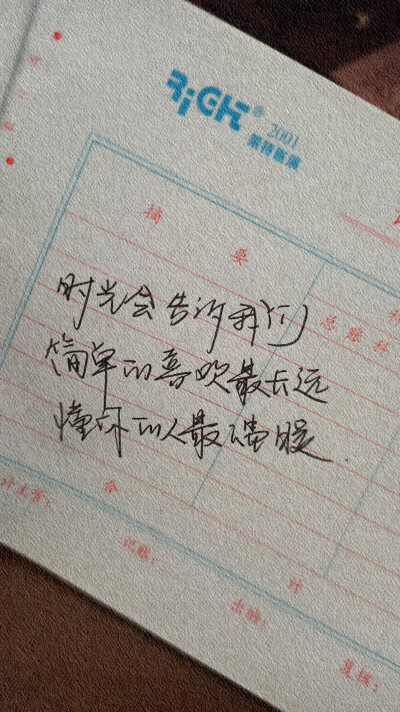 RiGHT®
2001
摘 要
总账科
时光会告诉我们
简单的喜欢最长远
懂你的人最温暖
合 计
计主管: 记账: 出纳: 复核: